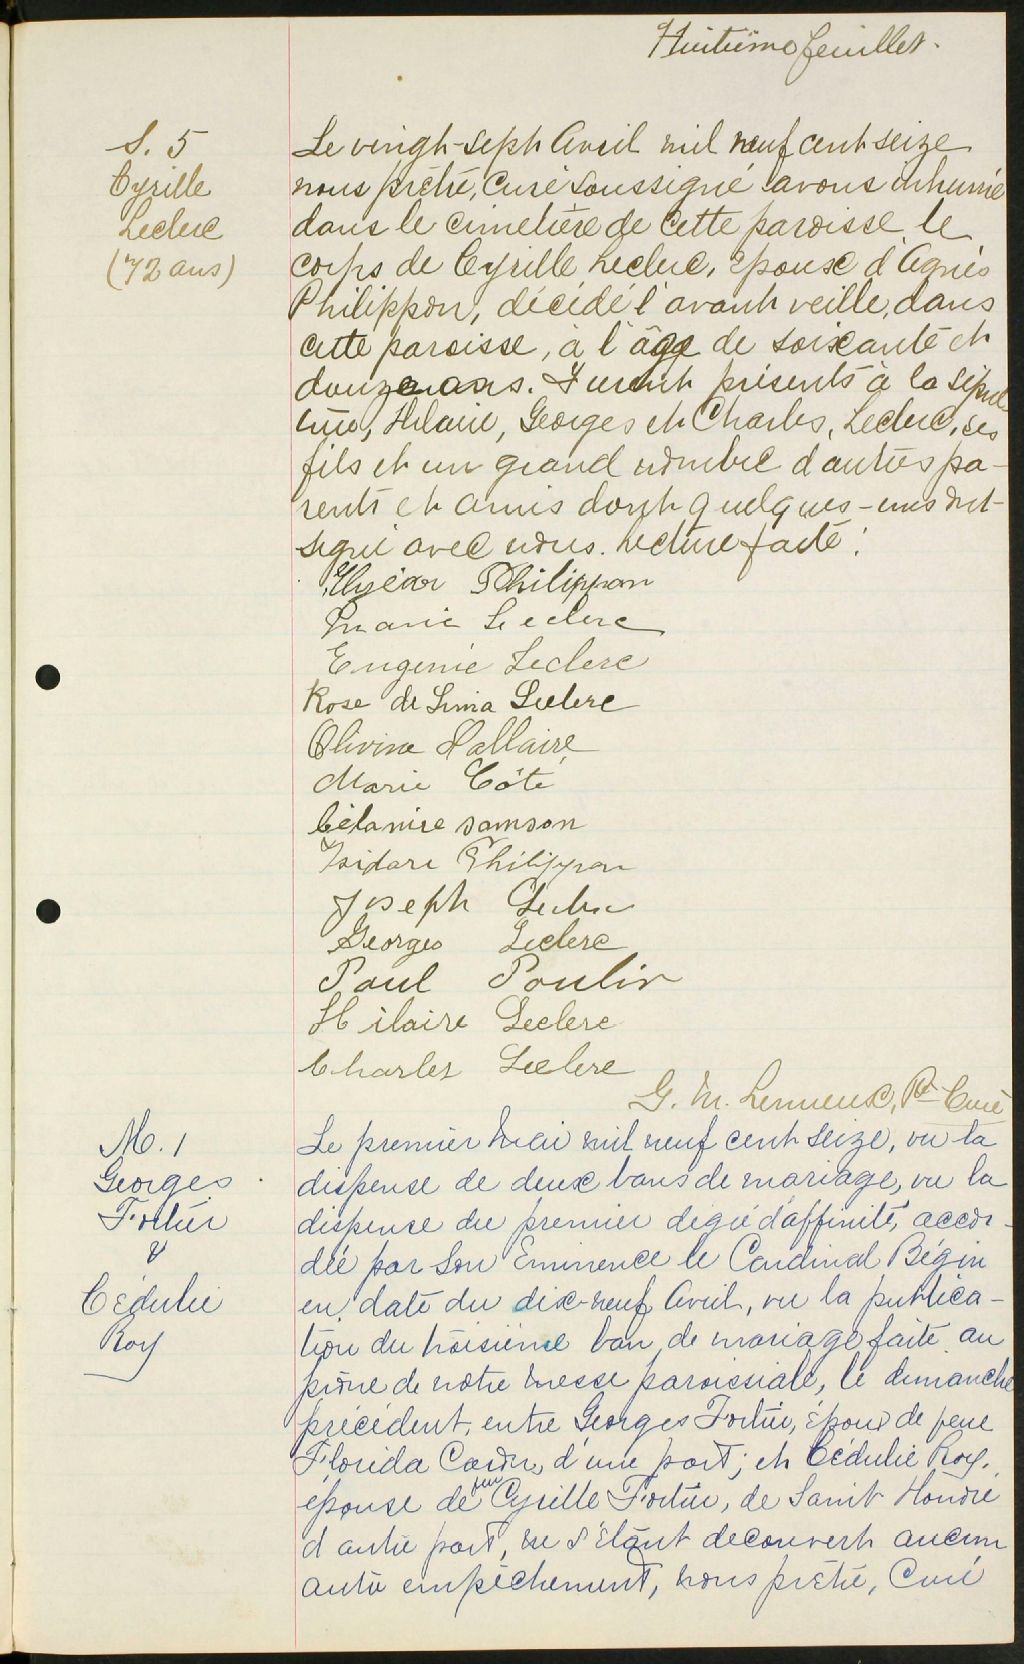 Huitième feuillet.
S. 5
Cyrille
Leclerc
(72 ans)
Le vingt-sept Avril mil neuf cent seize
nous prêtre, Curé soussigné avons inhumé
dans le cimetière de cette paroisse le
corps de Cyrille Leclerc, époux d'Agnès
Philippon, décédé l'avant veille, dans
cette paroisse, à l'âge de soixante et
douze ans. Furent présents à la sépul
ture, Hilaire, Georges et Charles, Leclerc, ses
fils et un grand nombre d'autres pa-
rents et amis dont quelques-uns ont
signé avec nous. Lecture faite.
Philippon
Marie Leclerc
Eugenie Leclerc
Rose de Lima Leclerc
Olivine Dallaire
Marie Côté
Célanire Samson
Isidore Philippon
Joseph Leclerc
Georges Leclerc
Paul Poulin
Hilaire Leclerc
Charles Leclerc
G. M. Lemieux, Ptre Curé
M. 1
Georges
Fortier
&
Cédulie
Roy
Le premier Mai mil neuf cent seize, vu la
dispense de deux bans de mariage, vu la
dispense du premier degré d'affinité, accor-
dée par Son Eminence le Cardinal Bégin
en date du dix-neuf Avril, vu la publica-
tion du troisième ban de mariage faite au
prône de notre messe paroissiale, le dimanche
précédent, entre Georges Fortier, époux de feue
Florida Caron, d'une part; et Cédulie Roy,
épouse de feu Cyrille Fortier, de Saint Honoré
d'autre part, ne s'étant découvert aucun
autre empêchement, nous prêtre, Curé